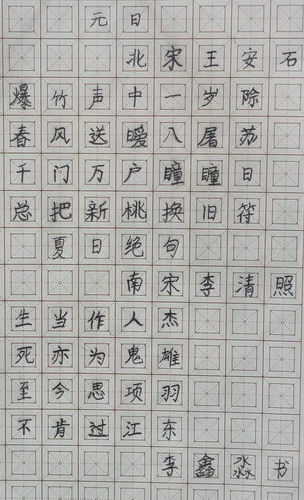 元日
北宋王安石
爆竹声中一岁除
春风送暖入屠苏
千门万户瞳瞳日
总把新桃换旧符
夏日绝句
南宋李清照
生当作人杰
死亦为鬼雄
至今思项羽
不肯过江东
李鑫淼书